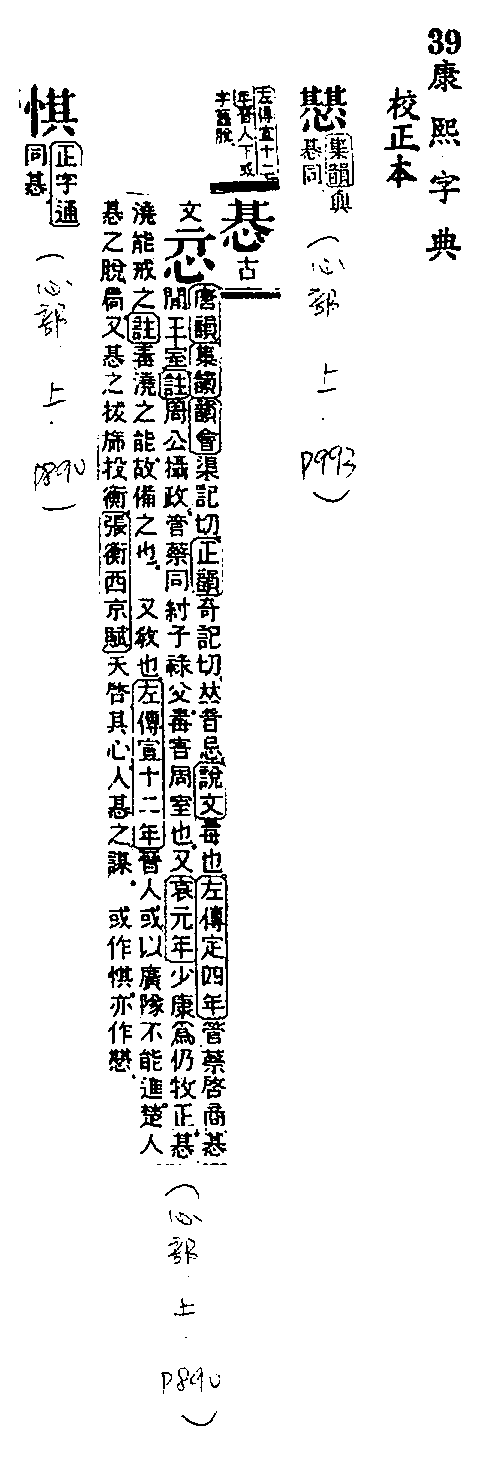 39康熙字典
校正本
集韻與
惎同
(心部 上.P993)
左傳宣十二
年晉人下或
字舊脫
惎古
文
唐韻集韻韻會渠記切正韻奇記切𠀤音忌說文毒也左傳定四年管蔡啓商惎
閒王室註周公攝政管蔡同紂子祿父毒害周室也又哀元年少康爲仍牧正惎
澆能戒之註毒澆之能故備之也 又敎也左傳宣十二年晉人或以廣隊不能進楚人
惎之脫扃又惎之拔旆投衡張衡西京賦天啓其心人惎之謀 或作 亦作
(心部 上.P890)
正字通
同惎
(心部 上.P890)